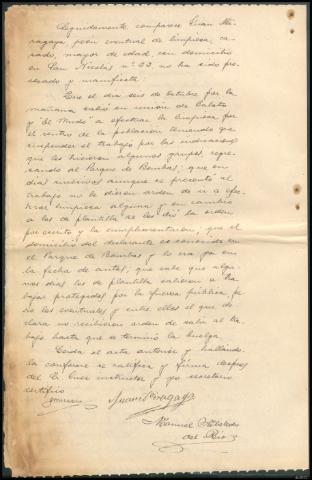 Seguidamente comparece Juan Miragaya peon eventual de limpieza, casado, mayor de edad, con domicilio
en San Nicolas nº 33 no ha sido procesado y manifiesta
Que el dia seis de octubre por la
mañana salió en union de Calate
y "El Mudo" a efectuar la limpieza por
el centro de la poblacion teniendo que
suspender el trabajo por las indicaciones
que les hicieron algunos grupos, regresando al Parque de Bombas; que en
dias sucesivos aunque se presentó al
trabajo no le dieron orden de ir a efectuar limpieza alguna y en cambio
a los de plantilla se les dió la orden
por escrito y la cumplimentaron, que el
domicilio del declarante es conocido en
el Parque de Bombas y lo era ya en
la fecha de autos; que sabe que algunos dias los de plantilla salieron a trabajar protegidos por la fuerza pública, pero los eventuales y entre ellos el que declara no recibieron orden de salir al trabajo hasta que se terminó la huelga.
Leida el acta anterior y hallandola conforme se ratifica y firma despues
del Sr Juez instructor y yo secretario
certifico
Juan Miragaya
Manuel
del Rio